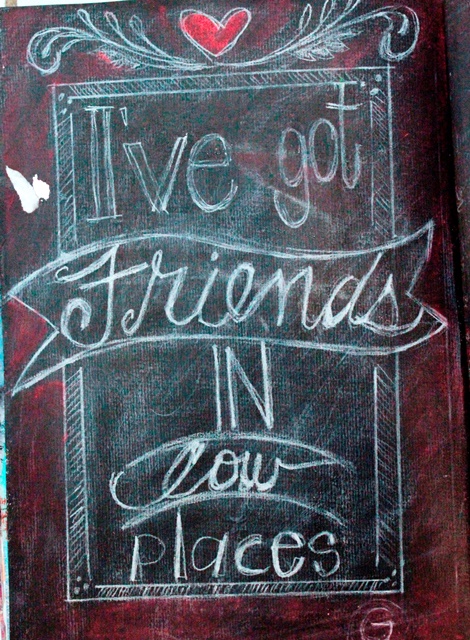 I've got
Friends
IN
low
places
G